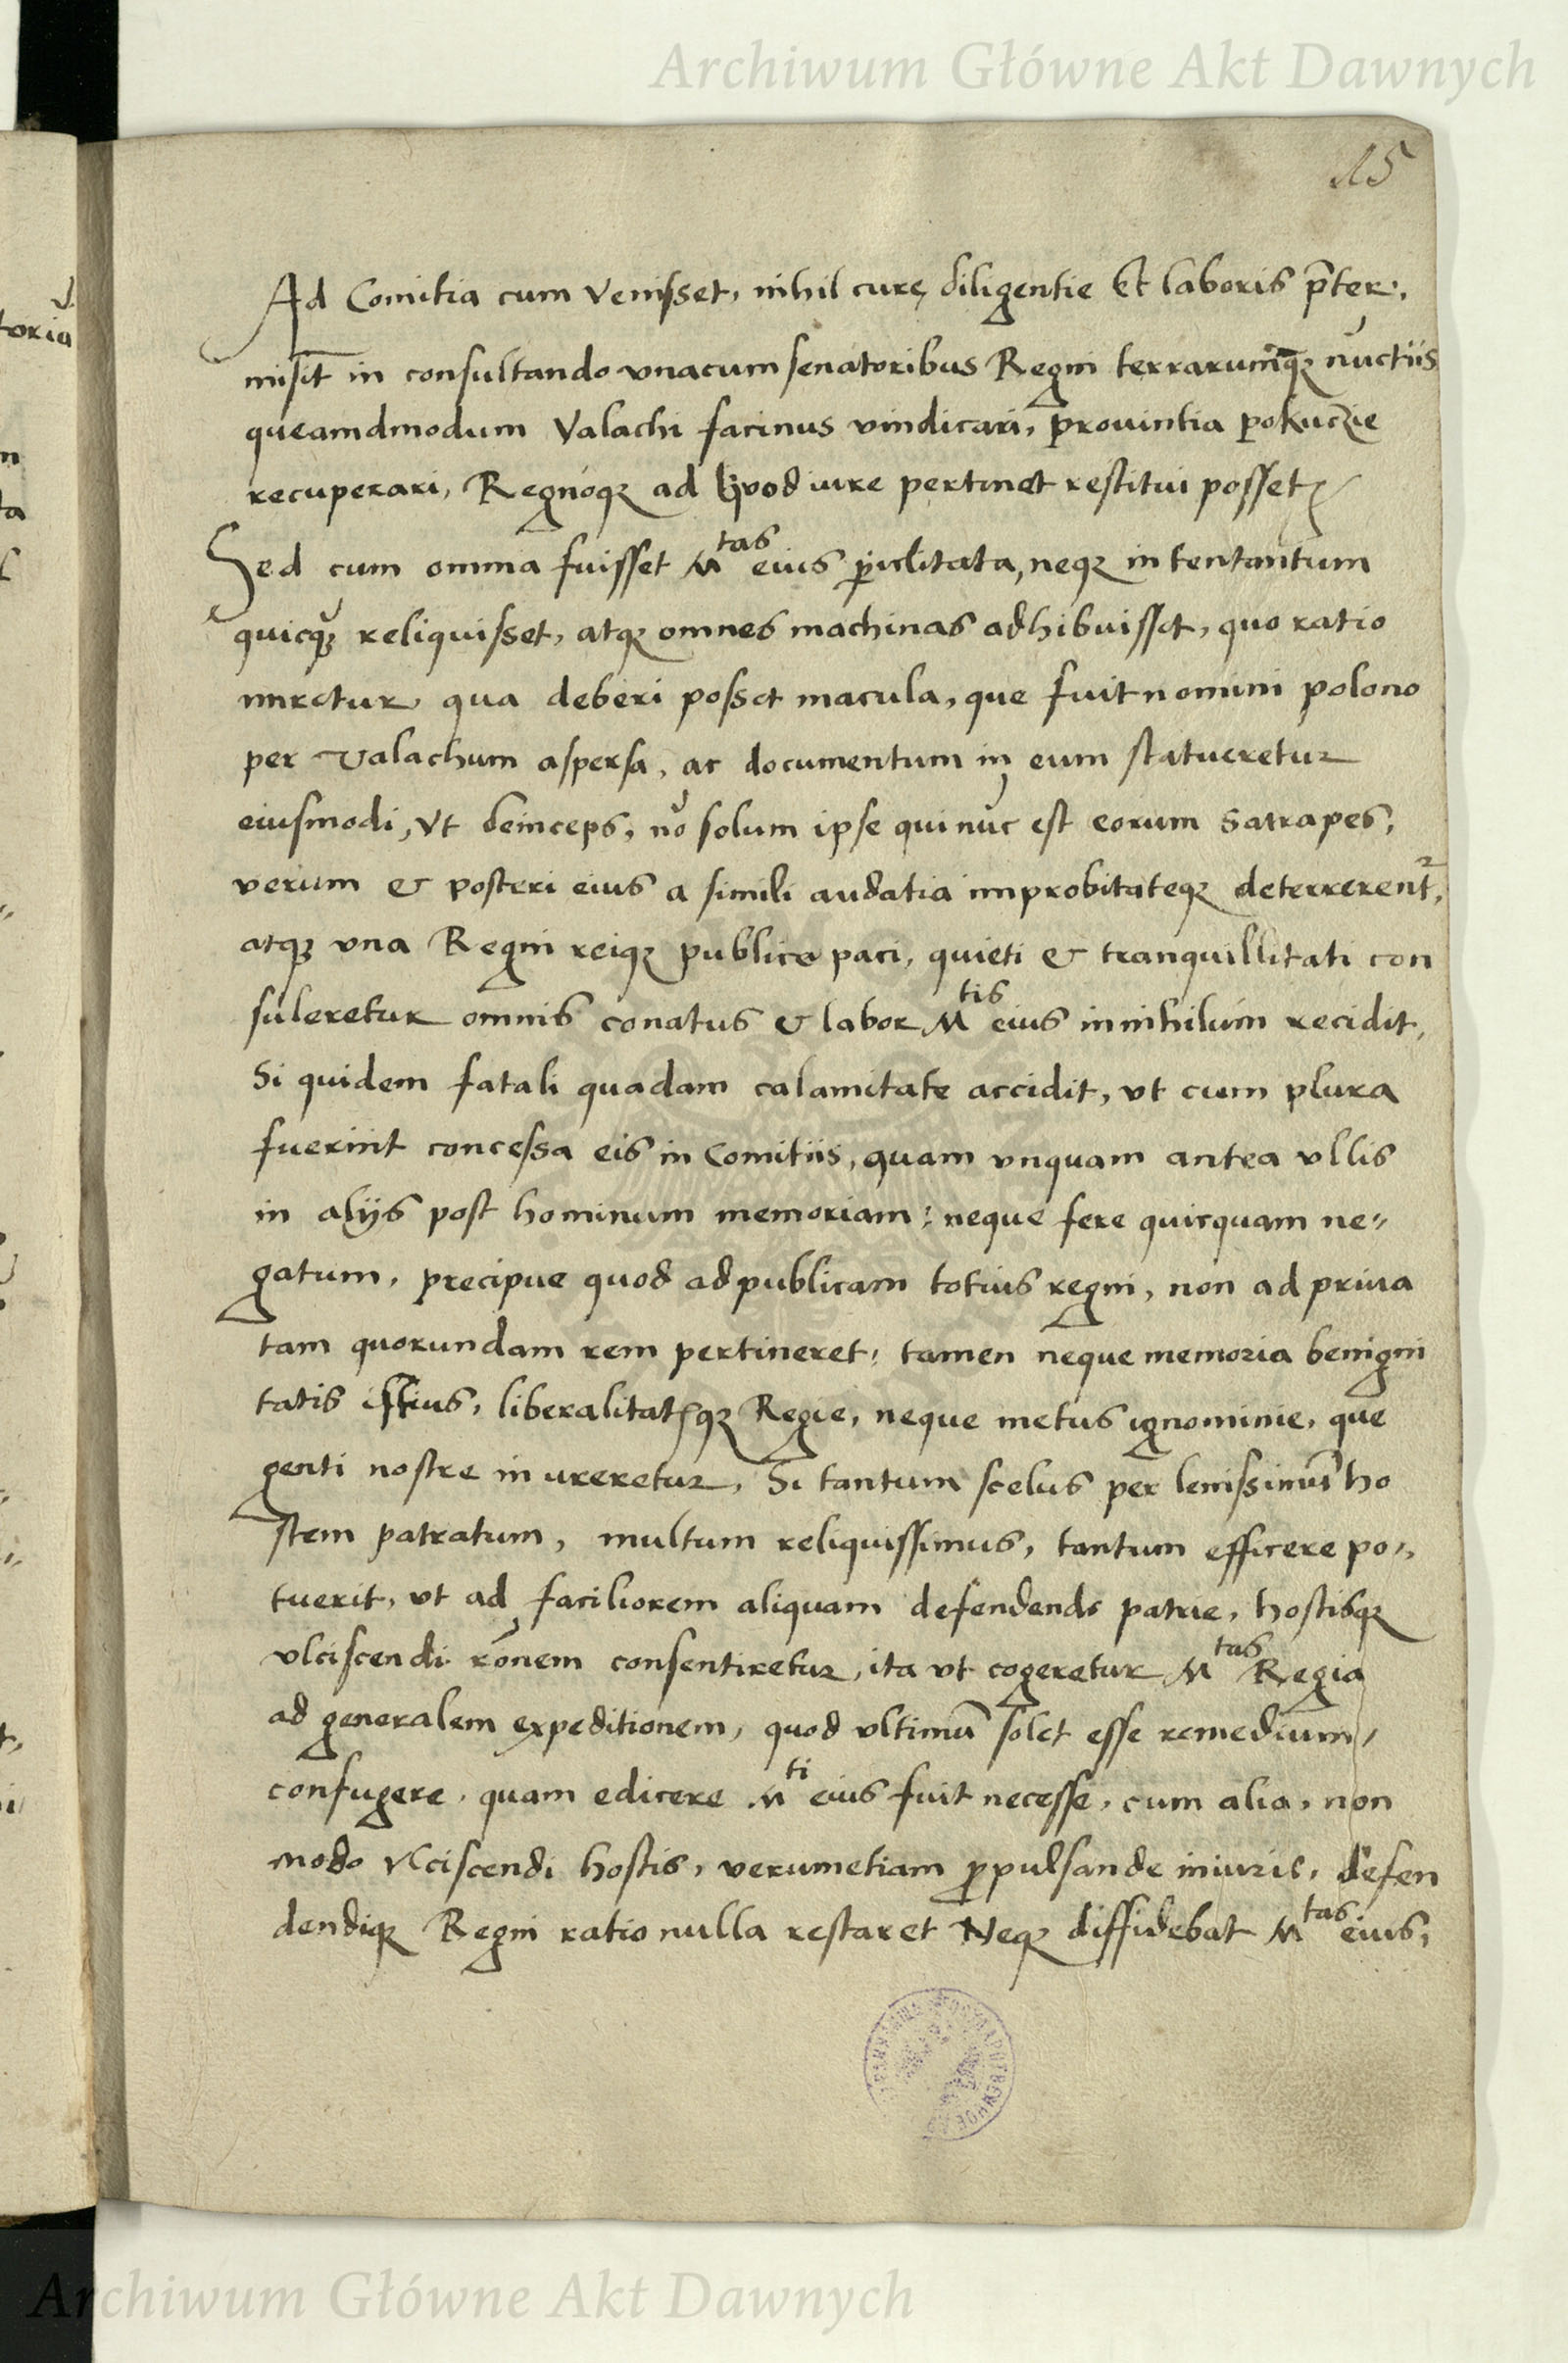 Archiwum Główne Akt Dawnych
15
Ad Comitia cum venisset, nihil curę, diligentie Et laboris p̄ter,
misit in consultando vnacum senatoribus Regni terrarumq̢ nūctiis
queamdmodum Valachi facinus vindicari, prouintia pokuczie
recuperari, Regnoq̢ ad quod iure pertinet restitui posset
Sed cum omnia fuisset Mtas eius piclitata, neq̢ in tentantum
quicq̢ reliquisset, atq̢ omnes machinas adhibuisset, quo ratio
iniretur qua deberi posset macula, que fuit nomini polono
per Valachum aspersa, ac documentum in eum statueretur
eiusmodi, Vt deinceps, nō solum ipse qui nūc est eorum Satrapes,
verum & posteri eius a simili audatia improbitateq̢ deterrerent,
atq̢ vna Regni reiq̢ publice paci, quieti & tranquillitati con
suleretur omnis conatus & labor Mtis eius in nihilum recidit,
Si quidem fatali quadam calamitate accidit, vt cum plura
fuerint concessa eis in Comitiis, quam vnquam antea vllis
in alijs post hominum memoriam: neque fere quicquam ne-
gatum, precipue quod ad publicam totius regni, non ad priua
tam quorundam rem pertineret, tamen neque memoria benigni
tatis istius, liberalitatisq̢ Regie, neque metus ignominie, que
genti nostre in vreretur, Si tantum scelus per lenissimū ho
stem patratum, multum reliquissimus, tantum efficere po-
tuerit, vt ad faciliorem aliquam defendende patrie, hostisq̢
vlciscendi rōnem consentiretur, ita vt cogeretur Mtas Regia
ad generalem expeditionem, quod vltimū solet esse remedium,
confugere, quam edicere Mti eius fuit necesse, cum alia, non
modo vlciscendi hostis, verumetiam propulsande iniurie, defen
dendiq̢ Regni ratio nulla restaret Neq̢ diffidebat Mtas eius,
Archiwum Główne Akt Dawnych